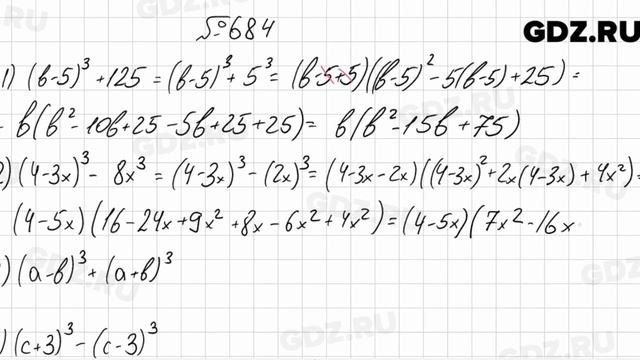 №684
GDZ.RU
1) (в-5)³ + 125 = (в-5)³ + 5³ = (в-5+5)((в-5)² - 5(в-5) + 25) =
- в(в² - 10в + 25 - 5в + 25 + 25) = в(в² - 15в + 75)
2) (4-3x)³ - 8x³ = (4-3x)³ - (2x)³ = (4-3x-2x)((4-3x)² + 2x(4-3x) + 4x²) =
(4-5x)(16 - 24x + 9x² + 8x - 6x² + 4x²) = (4-5x)(7x² - 16x
) (a-в)³ + (a+в)³
) (c+3)³ - (c-3)³